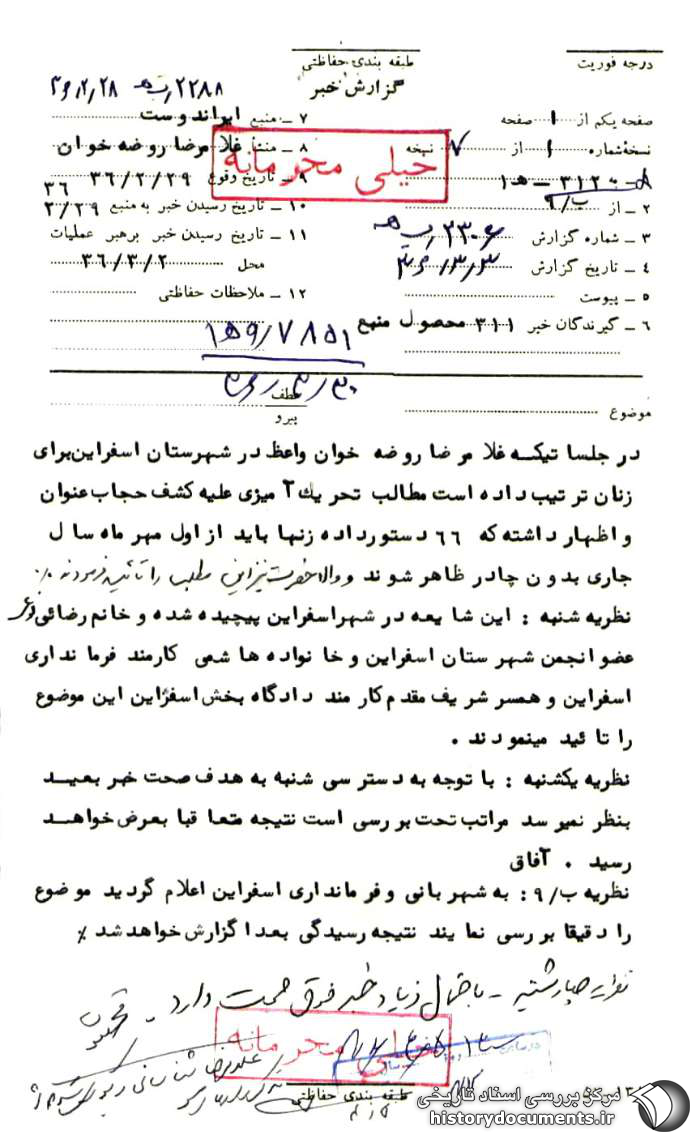 درجه فوریت
طبقه بندی حفاظتی
گزارش خبر
۲۲۸۸ / ه‍ ۳۶٫۲٫۲۸
صفحه یکم از ۱ صفحه
نسخه شماره ۱ از ۷ نسخه
خیلی محرمانه
۲ – از ۹/ب
۳ – شماره گزارش ۲۳۰۶
۴ – تاریخ گزارش ۳۶٫۳٫۳
۵ – پیوست
۶ – گیرندگان خبر ۳۱۱ محصول منبع
۷ – منبع ایراندوست
۸ – منشأ غلامرضا روضه خوان
۹ – تاریخ وقوع ۳۶/۲/۲۹
۱۰ – تاریخ رسیدن خبر به منبع ۳۶ ۲/۲۹
۱۱ – تاریخ رسیدن خبر برهبر عملیات
محل ۳۶/۳/۲
۱۲ – ملاحظات حفاظتی
عطف
پیرو
موضوع
در جلساتیکه غلامرضا روضه خوان واعظ در شهرستان اسفراین برای
زنان ترتیب داده است مطالب تحریک آمیزی علیه کشف حجاب عنوان
و اظهار داشته که ۶۶ دستور داده زنها باید از اول مهر ماه سال
جاری بدون چادر ظاهر شوند و والاحضرت نیز این مطلب را تائید فرمودند ٪
نظریه شنبه : این شایعه در شهر اسفراین پیچیده شده و خانم رضائی
عضو انجمن شهرستان اسفراین و خانواده هاشمی کارمند فرمانداری
اسفراین و همسر شریف مقدم کارمند دادگاه بخش اسفراین این موضوع
را تائید مینمودند .
نظریه یکشنبه : با توجه به دسترسی شنبه به هدف صحت خبر بعید
بنظر نمیرسد مراتب تحت بررسی است نتیجه متعاقبا بعرض خواهد
رسید . آفاق
نظریه ب/۹ : به شهربانی و فرمانداری اسفراین اعلام گردید موضوع
را دقیقا بررسی نمایند نتیجه رسیدگی بعدا گزارش خواهد شد ٪
نظریه چهارشنبه – باحتمال زیاد خبر فوق صحت دارد –
خیلی محرمانه
طبقه بندی حفاظتی
مرکز بررسی اسناد تاریخی
historydocuments.ir